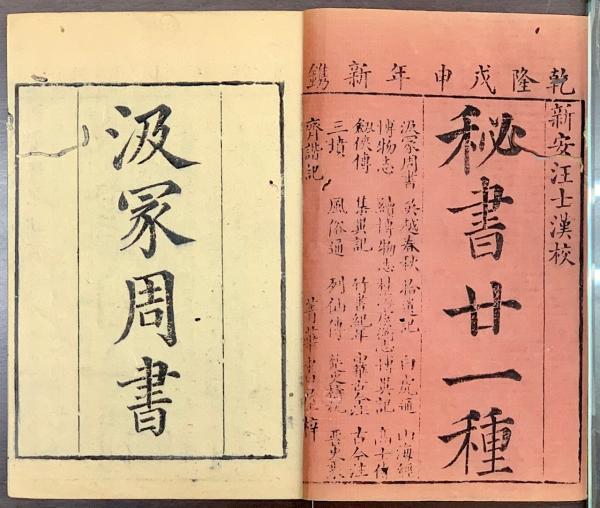 乾隆戊申年新鐫
新安汪士漢校
秘書廿一種
汲冢周書 吳越春秋 拾遺記 白虎通 山海經
博物志 續博物志 桂海虞衡志 博異記 高士傳
劍俠傳 集異記 竹書紀年 中華古今注 古今注
三墳 風俗通 列仙傳 楚史檮杌 晉史乘
齊諧記
汲冢周書